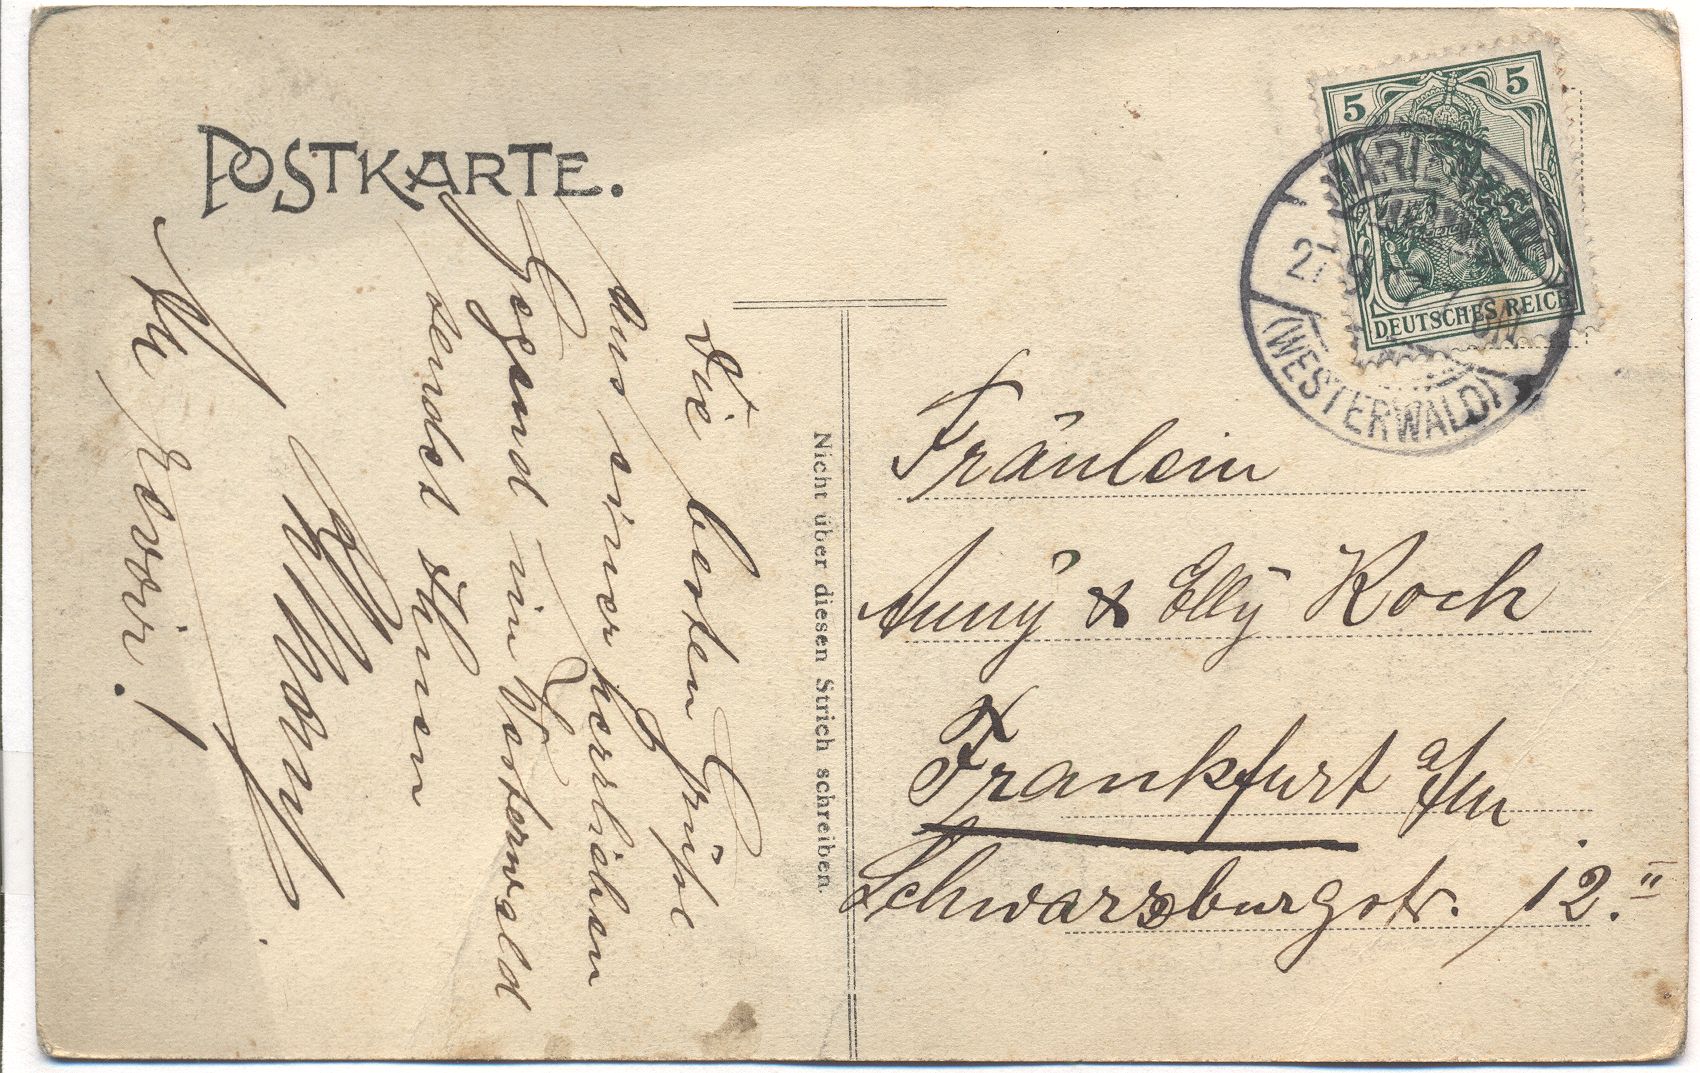 POSTKARTE.
Die besten Grüße
aus einer herrlichen
Gegend im Westerwald
sendet Ihnen
Au revoir!
Nicht über diesen Strich schreiben.
5 5
DEUTSCHES REICH
(WESTERWALD)
Fräulein
Anny & Elly Koch
Frankfurt a/m
Schwarzburgstr. 12.II